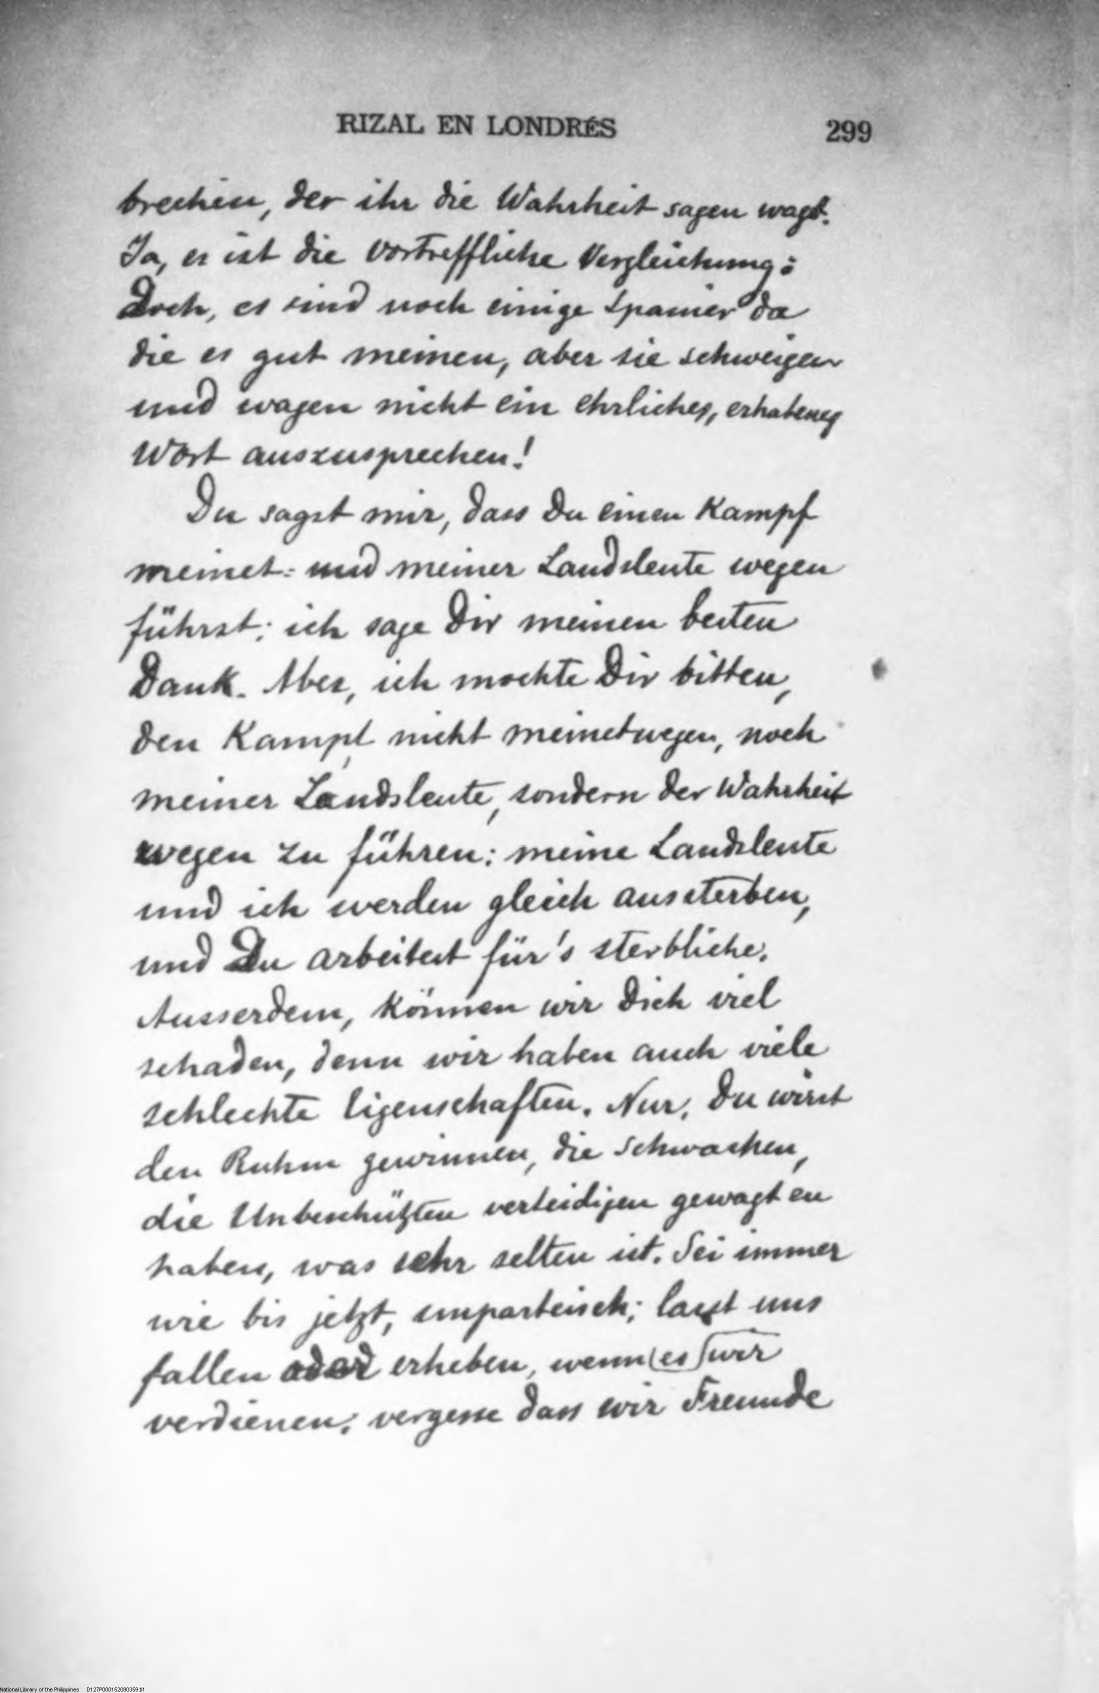 RIZAL EN LONDRÉS 299
brechen, der ihr die Wahrheit sagen wagt.
Ja, es ist die vortreffliche Vergleichung:
Doch, es sind noch einige Spanier da
die es gut meinen, aber sie schweigen
und wagen nicht ein ehrliches, erhabenes
Wort auszusprechen!
Du sagst mir, dass Du einen Kampf
meinet- und meiner Landsleute wegen
führst; ich sage Dir meinen besten
Dank. Aber, ich mochte Dir bitten,
den Kampf nicht meinetwegen, noch
meiner Landsleute, sondern der Wahrheit
wegen zu führen: meine Landsleute
und ich werden gleich aussterben,
und Du arbeitest für's sterbliche.
Ausserdem, können wir Dich viel
schaden, denn wir haben auch viele
schlechte Eigenschaften. Nur, Du wirst
den Ruhm gewinnen, die Schwachen,
die Unbeschützten verteidigen gewagt en
haben, was sehr selten ist. Sei immer
wie bis jetzt, unparteisch; lasst uns
fallen oder erheben, wenn (es) wir
verdienen; vergesse dass wir Freunde
National Library of the Philippines